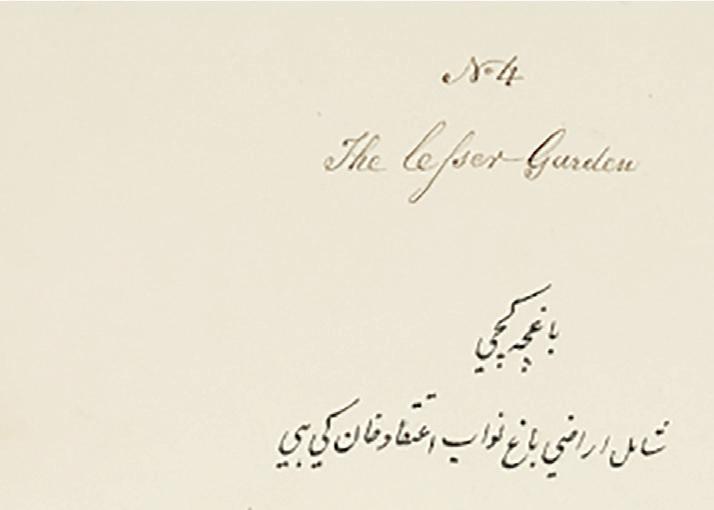 No 4
The leſser Garden
باغچه کچي
شامل اراضي باغ نواب اعتقاد خان کي هي